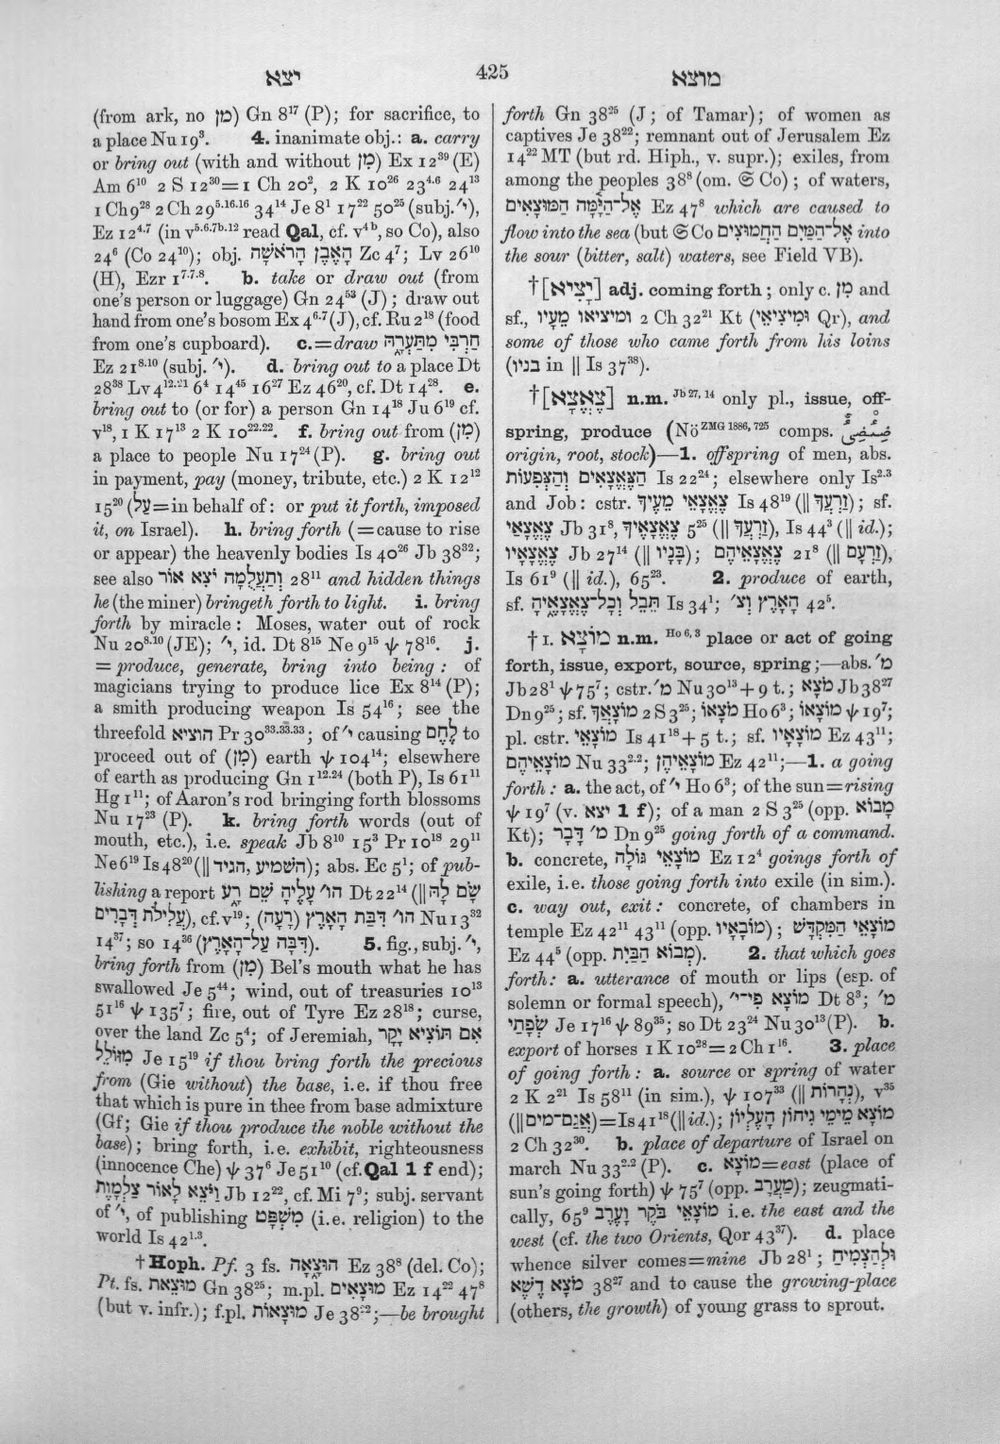 יצא
425
מוצא
(from ark, no מִן) Gn 8¹⁷ (P); for sacrifice, to
a place Nu 19³. 4. inanimate obj.: a. carry
or bring out (with and without מִן) Ex 12³⁹ (E)
Am 6¹⁰ 2 S 12³⁰=1 Ch 20², 2 K 10²⁶ 23⁴·⁶ 24¹³
1 Ch 9²⁸ 2 Ch 29⁵·¹⁶·¹⁶ 34¹⁴ Je 8¹ 17²² 50²⁵ (subj. ׳י),
Ez 12⁴·⁷ (in v⁵·⁶·⁷ᵇ·¹² read Qal, cf. v⁴ᵇ, so Co), also
24⁶ (Co 24¹⁰); obj. הָאֶבֶן הָרֹאשָׁה Zc 4⁷; Lv 26¹⁰
(H), Ezr 1⁷·⁷·⁸. b. take or draw out (from
one's person or luggage) Gn 24⁵³ (J); draw out
hand from one's bosom Ex 4⁶·⁷ (J), cf. Ru 2¹⁸ (food
from one's cupboard). c.=draw חַרְבִּי מִתַּעְרָהּ
Ez 21⁸·¹⁰ (subj. ׳י). d. bring out to a place Dt
28³⁸ Lv 4¹²·²¹ 6⁴ 14⁴⁵ 16²⁷ Ez 46²⁰, cf. Dt 14²⁸. e.
bring out to (or for) a person Gn 14¹⁸ Ju 6¹⁹ cf.
v¹⁸, 1 K 17¹³ 2 K 10²²·²². f. bring out from (מִן)
a place to people Nu 17²⁴ (P). g. bring out
in payment, pay (money, tribute, etc.) 2 K 12¹²
15²⁰ (עַל=in behalf of: or put it forth, imposed
it, on Israel). h. bring forth (=cause to rise
or appear) the heavenly bodies Is 40²⁶ Jb 38³²;
see also וְתַעֲלֻמָה יֹצִא אוֹר 28¹¹ and hidden things
he (the miner) bringeth forth to light. i. bring
forth by miracle: Moses, water out of rock
Nu 20⁸·¹⁰ (JE); ׳י, id. Dt 8¹⁵ Ne 9¹⁵ ψ 78¹⁶. j.
= produce, generate, bring into being: of
magicians trying to produce lice Ex 8¹⁴ (P);
a smith producing weapon Is 54¹⁶; see the
threefold הוציא Pr 30³³·³³·³³; of ׳י causing לֶחֶם to
proceed out of (מִן) earth ψ 104¹⁴; elsewhere
of earth as producing Gn 1¹²·²⁴ (both P), Is 61¹¹
Hg 1¹¹; of Aaron's rod bringing forth blossoms
Nu 17²³ (P). k. bring forth words (out of
mouth, etc.), i.e. speak Jb 8¹⁰ 15³ Pr 10¹⁸ 29¹¹
Ne 6¹⁹ Is 48²⁰ (|| השמיע, הגיד); abs. Ec 5¹; of pub-
lishing a report הו׳ עָלֶיהָ שֵׁם רָע Dt 22¹⁴ (|| שָׂם לָהּ
עֲלִילֹת דְּבָרִים), cf. v¹⁹; הו׳ דִּבַּת הָאָרֶץ (רָעָה) Nu 13³²
14³⁷; so 14³⁶ (דִּבָּה עַל־הָאָרֶץ). 5. fig., subj. ׳י,
bring forth from (מִן) Bel's mouth what he has
swallowed Je 5⁴⁴; wind, out of treasuries 10¹³
51¹⁶ ψ 135⁷; fire, out of Tyre Ez 28¹⁸; curse,
over the land Zc 5⁴; of Jeremiah, אִם תּוֹצִיא יָקָר
מִזּוֹלֵל Je 15¹⁹ if thou bring forth the precious
from (Gie without) the base, i.e. if thou free
that which is pure in thee from base admixture
(Gf; Gie if thou produce the noble without the
base); bring forth, i.e. exhibit, righteousness
(innocence Che) ψ 37⁶ Je 51¹⁰ (cf. Qal 1 f end);
וַיֹּצֵא לָאוֹר צַלְמָוֶת Jb 12²², cf. Mi 7⁹; subj. servant
of ׳י, of publishing מִשְׁפָּט (i.e. religion) to the
world Is 42¹·³.
†Hoph. Pf. 3 fs. הוּצָאָה Ez 38⁸ (del. Co);
Pt. fs. מוּצֵאת Gn 38²⁵; m.pl. מוּצָאִים Ez 14²² 47⁸
(but v. infr.); f.pl. מוּצָאוֹת Je 38²²;—be brought
forth Gn 38²⁵ (J; of Tamar); of women as
captives Je 38²²; remnant out of Jerusalem Ez
14²² MT (but rd. Hiph., v. supr.); exiles, from
among the peoples 38⁸ (om. 𝔊 Co); of waters,
אֶל־הַיָּמָּה הַמּוּצָאִים Ez 47⁸ which are caused to
flow into the sea (but 𝔊 Co אֶל־הַמַּיִם הַחֲמוּצִים into
the sour (bitter, salt) waters, see Field VB).
†[יָצִיא] adj. coming forth; only c. מִן and
sf., ומיציאו מֵעָיו 2 Ch 32²¹ Kt (וּמִיצִיאֵי Qr), and
some of those who came forth from his loins
(בניו in || Is 37³⁸).
†[צֶאֱצָא] n.m. Jb 27, 14 only pl., issue, off-
spring, produce (Nö ZMG 1886, 725 comps. ضِئْضِئٌ
origin, root, stock)—1. offspring of men, abs.
הַצֶּאֱצָאִים וְהַצְּפִעוֹת Is 22²⁴; elsewhere only Is²·³
and Job: cstr. צֶאֱצָאֵי מֵעֶיךָ Is 48¹⁹ (|| זַרְעֲךָ); sf.
צֶאֱצָאַי Jb 31⁸, צֶאֱצָאֶיךָ 5²⁵ (|| זַרְעֲךָ), Is 44³ (|| id.);
צֶאֱצָאָיו Jb 27¹⁴ (|| בָּנָיו); צֶאֱצָאֵיהֶם 21⁸ (|| זַרְעָם),
Is 61⁹ (|| id.), 65²³. 2. produce of earth,
sf. תֵּבֵל וְכָל־צֶאֱצָאֶיהָ Is 34¹; הָאָרֶץ וְצ׳ 42⁵.
†1. מוֹצָא n.m. Ho 6, 3 place or act of going
forth, issue, export, source, spring;—abs. מ׳
Jb 28¹ ψ 75⁷; cstr. מ׳ Nu 30¹³+9 t.; מֹצָא Jb 38²⁷
Dn 9²⁵; sf. מוֹצָאֲךָ 2 S 3²⁵; מֹצָאוֹ Ho 6³; מוֹצָאוֹ ψ 19⁷;
pl. cstr. מוֹצָאֵי Is 41¹⁸+5 t.; sf. מוֹצָאָיו Ez 43¹¹;
מוֹצָאֵיהֶם Nu 33²·²; מוֹצָאֵיהֶן Ez 42¹¹;—1. a going
forth: a. the act, of ׳י Ho 6³; of the sun=rising
ψ 19⁷ (v. יצא 1 f); of a man 2 S 3²⁵ (opp. מָבוֹא
Kt); מ׳ דָבָר Dn 9²⁵ going forth of a command.
b. concrete, מוֹצָאֵי גוֹלָה Ez 12⁴ goings forth of
exile, i.e. those going forth into exile (in sim.).
c. way out, exit: concrete, of chambers in
temple Ez 42¹¹ 43¹¹ (opp. מוֹבָאָיו); מוֹצָאֵי הַמִּקְדָּשׁ
Ez 44⁵ (opp. מְבוֹא הַבַּיִת). 2. that which goes
forth: a. utterance of mouth or lips (esp. of
solemn or formal speech), מוֹצָא פִי־י׳ Dt 8³; מ׳
שְׂפָתַי Je 17¹⁶ ψ 89³⁵; so Dt 23²⁴ Nu 30¹³ (P). b.
export of horses 1 K 10²⁸=2 Ch 1¹⁶. 3. place
of going forth: a. source or spring of water
2 K 2²¹ Is 58¹¹ (in sim.), ψ 107³³ (|| נְהָרוֹת), v³⁵
(|| אֲגַם־מים)=Is 41¹⁸ (|| id.); מוֹצָא מֵימֵי גִיחוֹן הָעֶלְיוֹן
2 Ch 32³⁰. b. place of departure of Israel on
march Nu 33²·² (P). c. מוֹצָא=east (place of
sun's going forth) ψ 75⁷ (opp. מַעֲרָב); zeugmati-
cally, 65⁹ מוֹצָאֵי בֹקֶר וָעֶרֶב i.e. the east and the
west (cf. the two Orients, Qor 43³⁷). d. place
whence silver comes=mine Jb 28¹; וּלְהַצְמִיחַ
מֹצָא דֶשֶׁא 38²⁷ and to cause the growing-place
(others, the growth) of young grass to sprout.